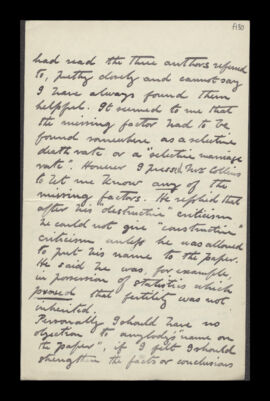 had read the three authors referred
to, pretty closely and cannot say
I have always found them
helpful. It seemed to me that
the missing factor had to be
found somewhere as a selective
death rate or a "selective marriage
rate". However I pressed Mr Collins
to let me know any of the
missing factors. He replied that
after his "destructive" criticism
he could not give "constructive"
criticism unless he was allowed
to put his name to the paper.
He said he was, for example,
in possession of statistics which
proved that fertility was not
inherited.
Personally I should have no
objection to anybody's "name on
the paper", if I felt I should
strengthen the facts or conclusions